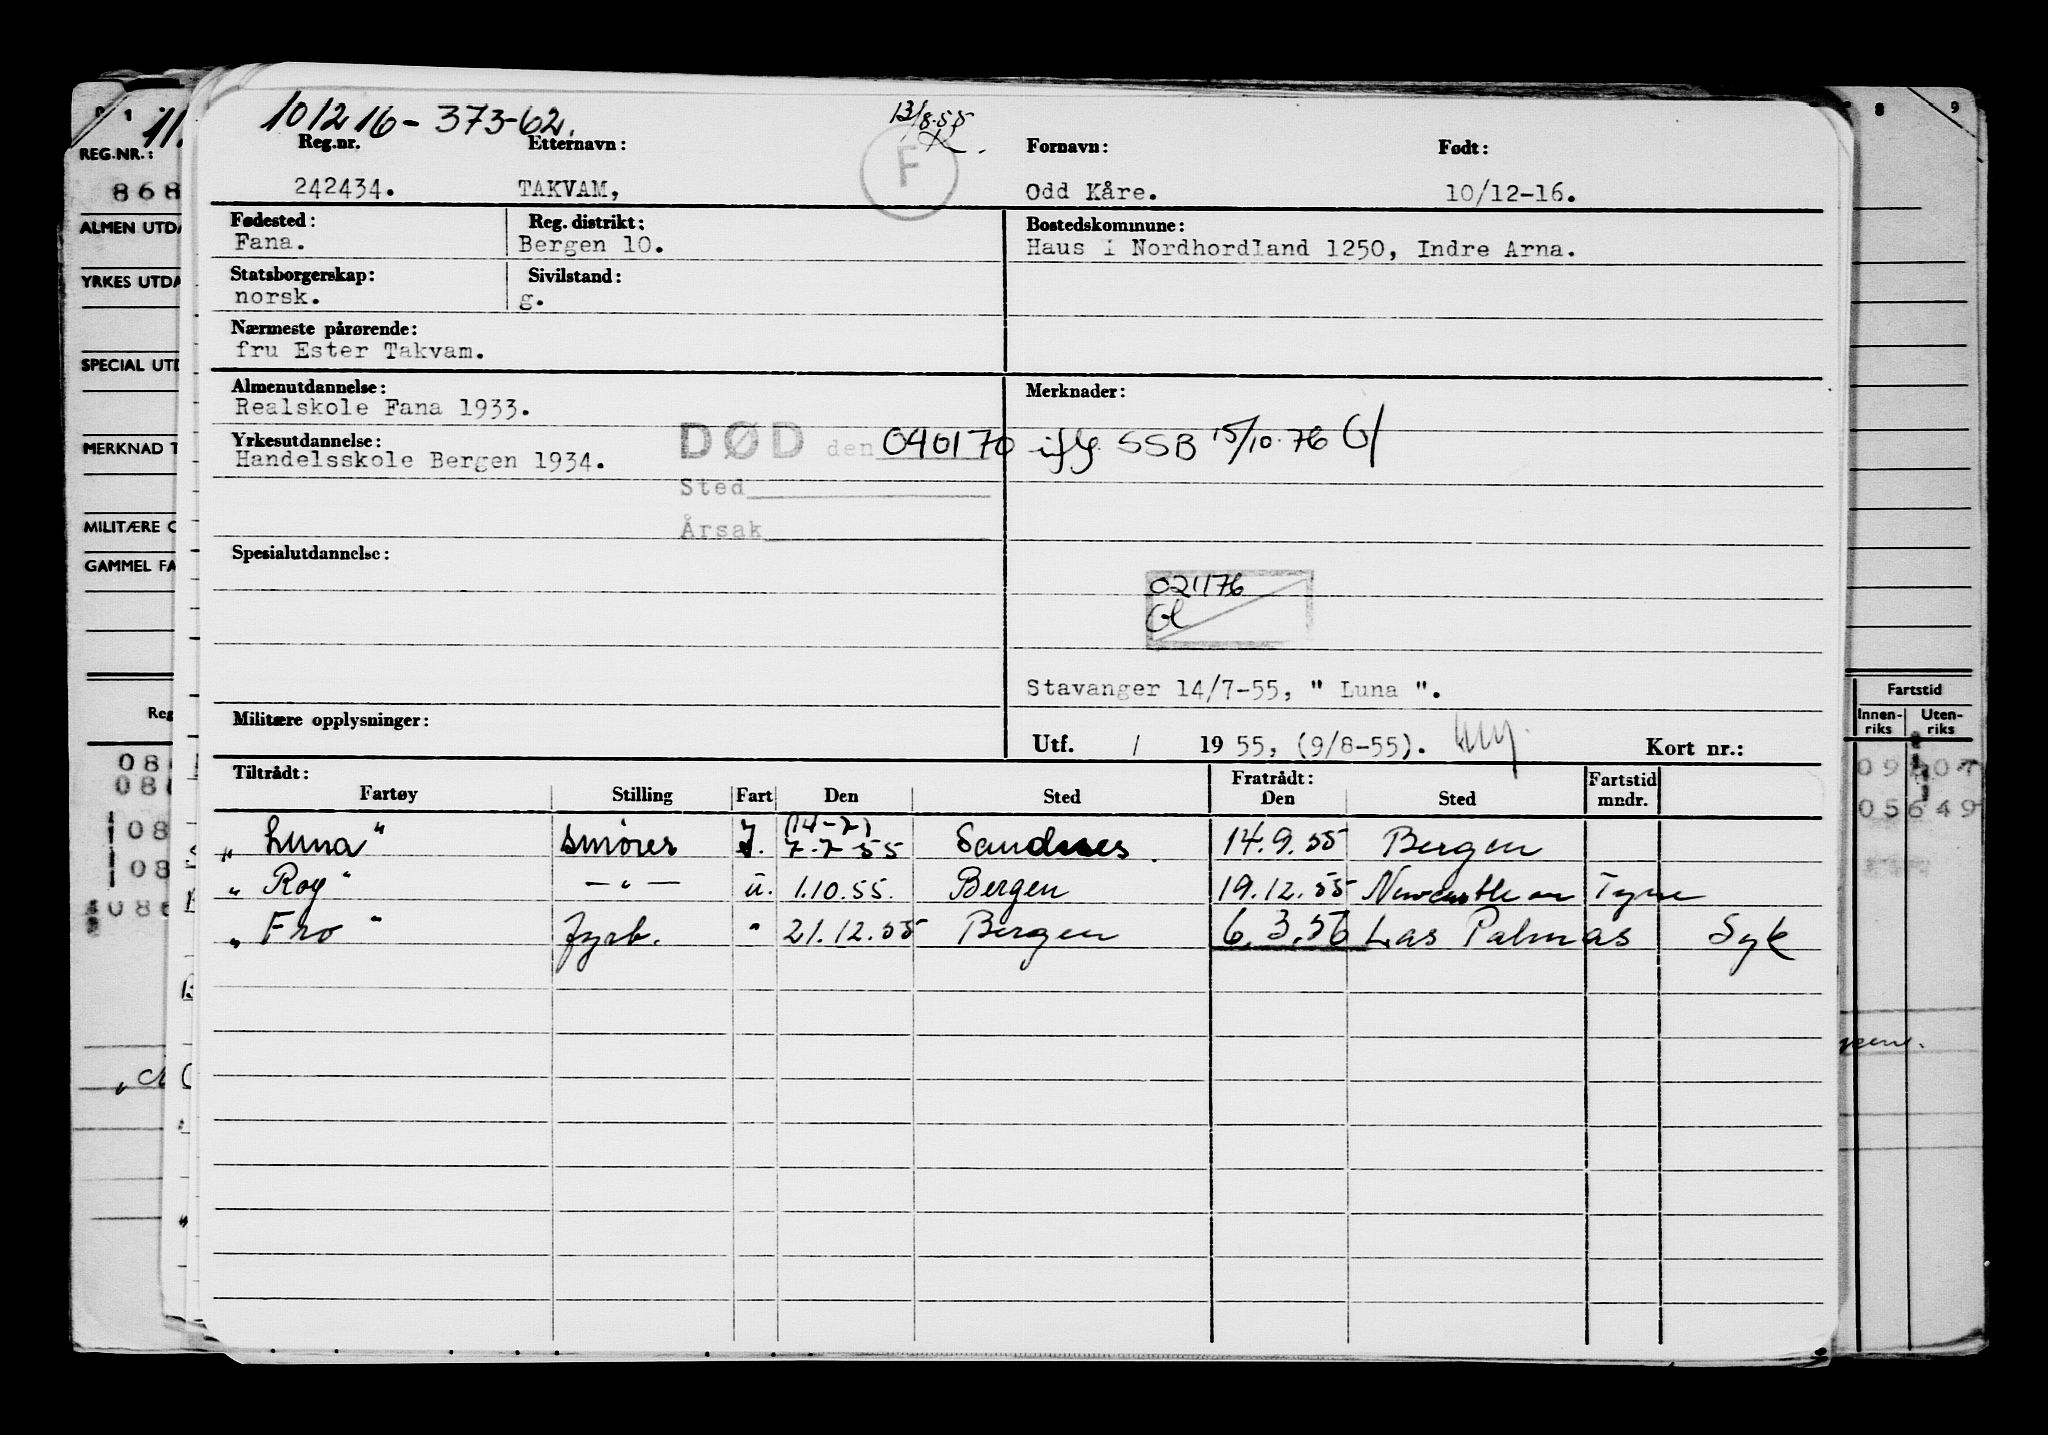 101216-373-62.
13/8-55
Reg.nr. Etternavn: F Fornavn: Født:
242434. TAKVAM, Odd Kåre. 10/12-16.
Fødested: Reg. distrikt: Bostedskommune:
Fana. Bergen 10. Haus i Nordhordland 1250, Indre Arna.
Statsborgerskap: Sivilstand:
norsk. g.
Nærmeste pårørende:
fru Ester Takvam.
Almenutdannelse: Merknader:
Realskole Fana 1933.
Yrkesutdannelse: DØD den 040170 iflg. SSB 15/10.76 Gl
Handelsskole Bergen 1934.
Sted
Årsak
Spesialutdannelse:
021176
Gl
Stavanger 14/7-55, " Luna ".
Militære opplysninger:
Utf. / 1955, (9/8-55). Kort nr.:
Tiltrådt: Fratrådt: Fartstid
Fartøy Stilling Fart Den Sted Den Sted mndr.
(14-7)
" Luna " smører 7-7-55 Sandnes. 14.9.55 Bergen
" Roy " — " — u. 1.10.55. Bergen 19.12.55 Newcastle on Tyne
" Fro " fyrb. " 21.12.55 Bergen 6.3.56 Las Palmas Syk
0 1
11.
REG.NR.:
868
ALMEN UTDA
YRKES UTDA
SPECIAL UTD
MERKNAD T
MILITÆRE O
GAMMEL FA
Reg
08
086
08
08
086
8 9
Fartstid
Innen-riks Uten-riks
05649